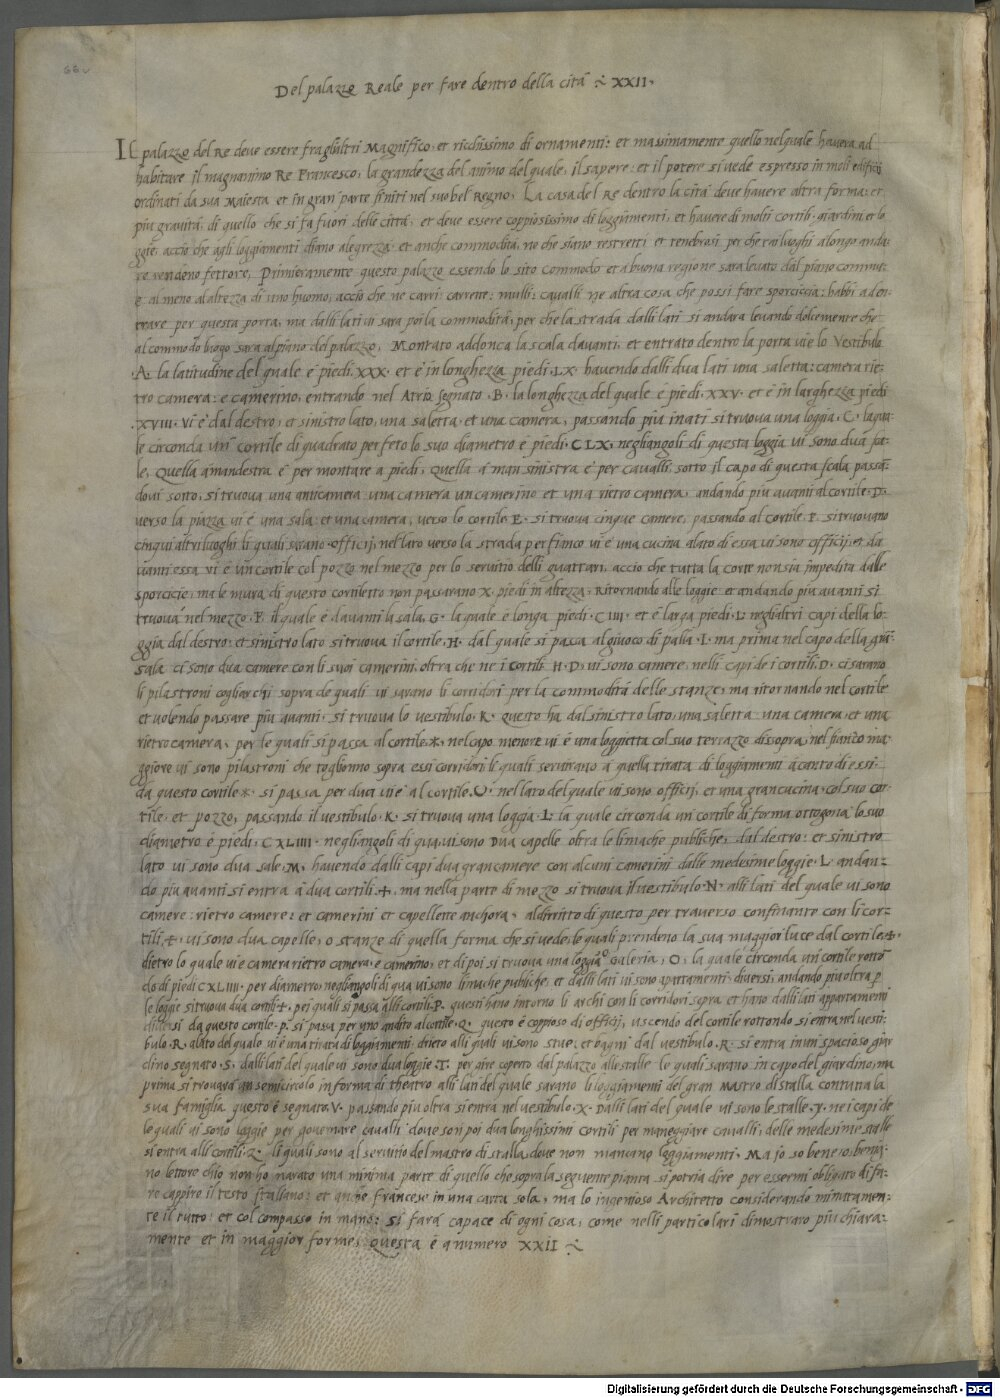 Del palazzo Reale per fare dentro della cita ÷ XXII·
IL palazzo del Re deve essere fra gl'altri Magnifico, et richissimo di ornamenti: et massimamente quello nel quale havera ad
habitare il magnanimo Re Francesco, la grandezza del animo del quale, il sapere, et il potere si vede espresso in molti edificij
ordinati da sua Maiesta et in gran parte finiti nel suo bel Regno, La casa del Re dentro la cita deve havere altra forma: et
più gravità, di quello che si fa fuori delle citta, et deve essere coppiosissimo di loggiamenti, et havere di molti cortili, giardini et lo
ggie, accio che agli loggiamenti diano alegrezza, et anche commodita, ne che siano restretti et tenebrosi, per che tai luoghi a longo anda
re rendeno fettore, Primieramente questo palazzo essendo lo sito commodo et a buona regione sara levato dal piano commu
e al meno al altezza di uno huomo, accio che ne carri carrette: mulli, cavalli ne altra cosa che possi fare sporciccia: habbi a den-
trare per questa porta, ma dalli lati vi sara poi la commodità, per che la strada dalli lati si andara levando dolcemente che
al commodo luogo sara al piano del palazzo, Montato addonca la scala davanti, et entrato dentro la porta vi e lo Vestibulo
A, la latitudine del quale è piedi XXX· et è in longhezza piedi ·LX· havendo dalli dua lati una saletta: camera rie-
tro camera: e camerino, entrando nel Atrio segnato ·B, la longhezza del quale è piedi ·XXV· et è in larghezza piedi
·XVIII· vi è dal destro, et sinistro lato, una saletta, et una camera, passando più inanti si truova una loggia ·C· la qua
le circonda un cortile di quadrato perfeto lo suo diametro è piedi ·CLX, negli angoli di questa loggia vi sono dua sca
le, Quella a man destra è per montare a piedi, Quella a man sinistra è per cavalli, sotto il capo di questa scala passan
dovi sotto, si truova una anticamera una camera un camerino et una rietro camera, andando piu avanti al cortile ·D·
verso la piazza vi è una sala et una camera, verso lo cortile E· si truova cinque camere, passando al cortile ·F· si truovano
cinqui altri luoghi li quali sarano officij, nel lato verso la strada per fianco vi è una cucina a lato di essa vi sono officij, et da
vanti essa vi è un cortile col pozzo nel mezzo per lo servitio delli guattari, accio che tutta la corte non sia impedita dalle
sporcicie, ma le mura di questo cortiletto non passarano ·X· piedi in altezza, Ritornando alle loggie et andando piu avanti si
truova nel mezzo ·F· il quale è davanti la sala, G· la quale è longa piedi ·CIIII· et è larga piedi ·L· negli altri capi della lo-
ggia dal destro et sinistro lato si truova il cortile, H· dal quale si passa al giuoco di palla ·I· ma prima nel capo della gran
sala ci sono dua camere con li suoi camerini, oltra che ne i cortili H· D, vi sono camere, nelli capi de i cortili, D· ci sarano
li pilastroni co gli archi sopra de quali vi sarano li corridori per la commodità delle stanze, ma ritornando nel cortile
et volendo passare piu avanti, si truova lo vestibulo ·K· Questo ha dal sinistro lato, una saletta una camera, et una
rietro camera, per le quali si passa al cortile *, nel capo menore vi è una loggietta col suo terrazzo dissopra, nel fianco ma
ggiore vi sono pilastroni che togliono sopra essi corridori li quali servirano a quella tirata di loggiamenti à canto di essi,
da questo cortile * si passa per due vie al cortile, O· nel lato del quale vi sono officij, et una gran cucina, col suo cor
tile, et pozzo, passando il vestibulo ·K· si truova una loggia ·L· la quale circonda un cortile di forma ottogona lo suo
diametro è piedi, CXLIIII· negli angoli di qua vi sono dua capelle oltra le limache publiche, dal destro: et sinistro
lato vi sono dua sale, M, havendo dalli capi dua gran camere con alcuni camerini dalle medesime loggie ·L· andan-
do piu avanti si entra à dua cortili ·+, ma nella parte di mezzo si truova il vestibulo ·N· alli lati del quale vi sono
camere: rietro camere: et camerini et capellette anchora, al diritto di questo per traverso confinante con li cor-
tili, +, vi sono dua capelle, o stanze di quella forma che si vede, le quali prendeno la sua maggior luce dal cortile, +,
dietro lo quale vi è camera rietro camera, è camerino, et di poi si truova una loggia, ò Galeria, O, la quale circonda un cortile rotton
do di piedi CXLIIII· per diametro, negli angoli di qua vi sono limache publiche, et dalli lati vi sono apartamenti diversi, andando piu oltra per
le loggie si truova dua cortili +, pei quali si passa alli cortili ·P· questi hano intorno li archi con li corridori sopra et hano dalli lati appartamenti
diversi da questo cortile ·P· si passa per uno andito al cortile ·Q· questo è copioso di officij, uscendo del cortile rottondo si entra nel vesti-
bulo ·R, a lato del quale vi è una tirata di loggiamenti, drieto alli quali vi sono stue et bagni dal vestibulo ·R· si entra in un spacioso giar
dino segnato ·S, dalli lati del quale vi sono dua loggie ·T, per gire coperto dal palazzo alle stalle le quali sarano in capo del giardino, ma
prima si trovara un semicircolo in forma di theatro alli lati del quale sarano li loggiamenti del gran mastro di stalla con tutta la
sua famiglia questo è segnato ·V· passando piu oltra si entra nel vestibulo ·X· Dalli lati del quale vi sono le stalle ·y· ne i capi de
le quali vi sono loggie per governare cavalli dove son poi dua longhissimi cortili per maneggiare cavalli, delle medesime stalle
si entra alli cortili ·Z· li quali sono al servitio del mastro di stalla dove non mancano loggiamenti· Ma jo so bene, o beni-
no lettore ch'io non ho narato una minima parte di quello che sopra la seguente pianta si potria dire per essermi obligato di fa
re cappire il testo Italiano: et anche Francese in una carta sola, ma lo ingenioso Architetto considerando minutamen-
te il tutto: et col compasso in mano: si farà capace di ogni cosa, come nelli particolari dimostraro più chiara-
mente et in maggior forme, Questa è a numero XXII ÷
Digitalisierung gefördert durch die Deutsche Forschungsgemeinschaft - DFG